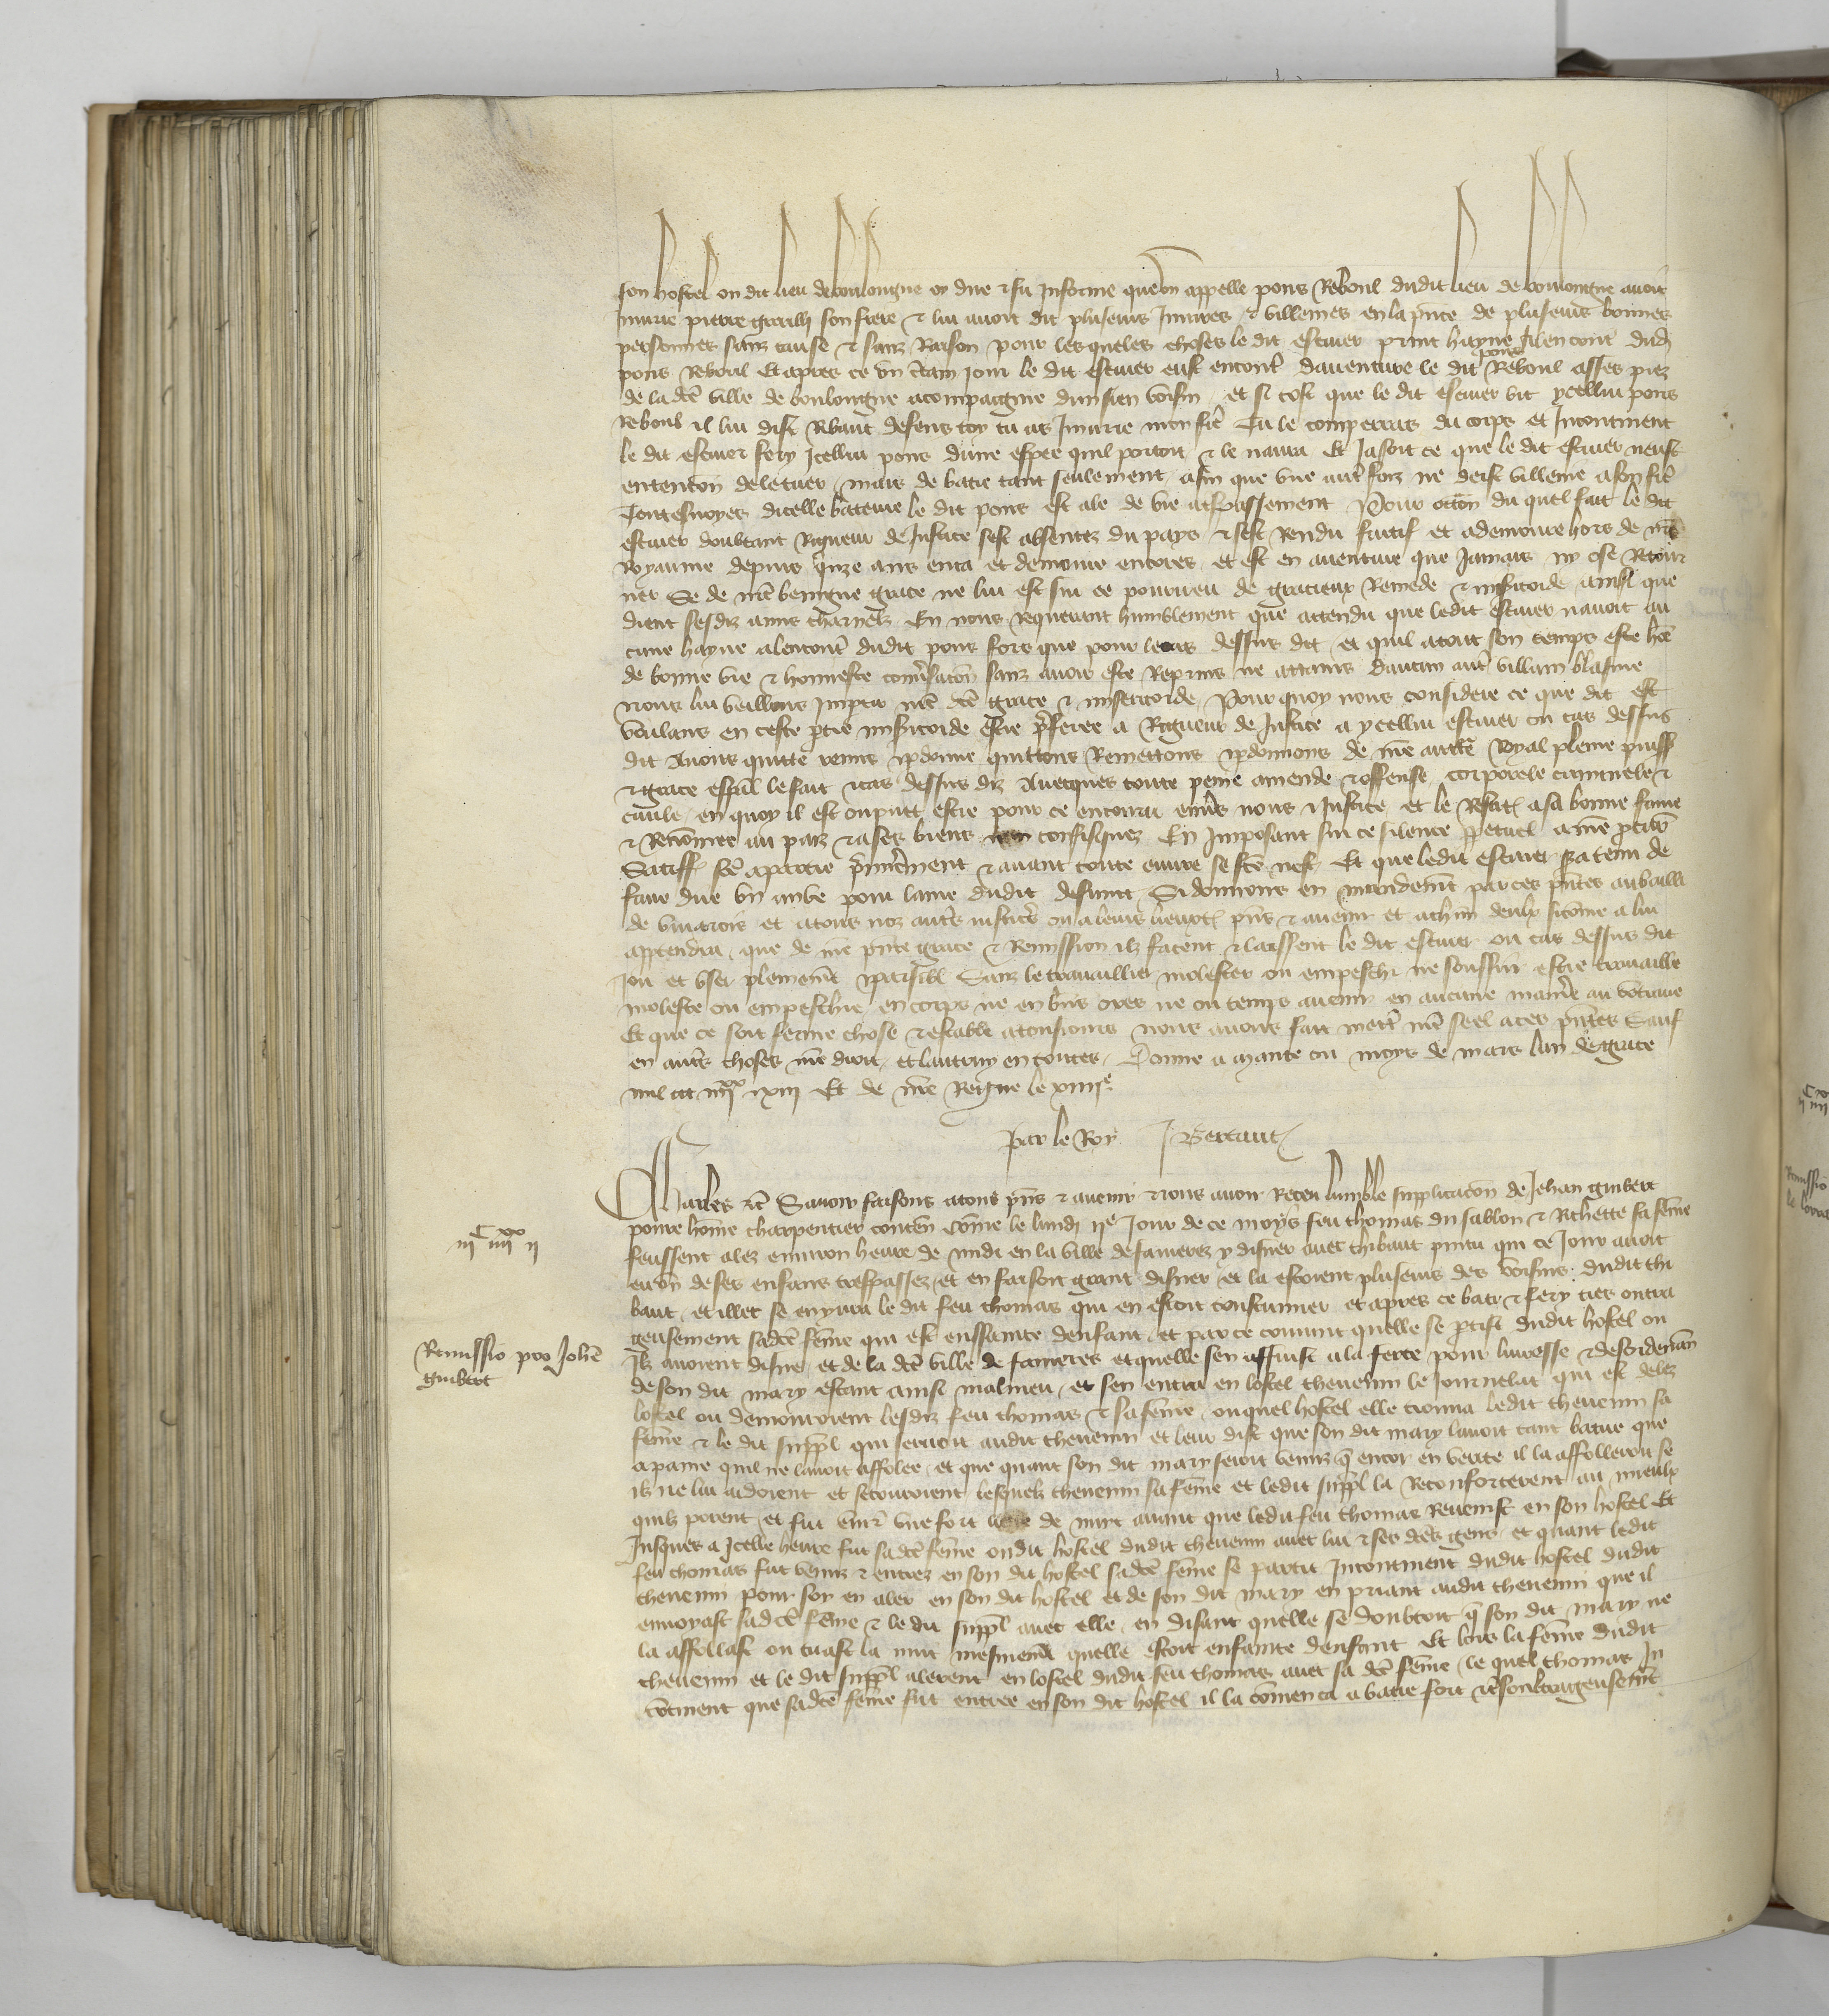 son hostel ou dit lieu de boulongne oy dire & fu Informe que on appelle pons Reboul dudit lieu de bouloingne avoit
Iniurie pierre son frere & lui avoit dit pluseurs Iniures & villenies en la pñce de pluseurs bonnes
personnes sanz cause & sanz Raison pour lesqueles choses le dit estiuer print hayne alencont dud
pons Reboul Et apres ce vn c̃tain jour le dit estiuer eust encont̃ dauenture le dit pons Reboul asses prez
de la dc̃e ville de boulongne acompaigne dun sien voisin et si tost que le dit estiuer vit ycellui pons
Reboul il lui dist Ribaut defens toy tu as Iniurie mon fr̃e Tu le comperras du corps et Incontinent
le dit estiuer fery Icellui pons dune espee quil portoit & le navra Et Jasoit ce que le dit estiuer neust
entencõn de le tuer mais de batre tant seulement afin que vne aut̃ foiz ne deist villenie a son fr̃e
Toutesuoyes dicelle bateure le dit pons est ale de vie a trespassement Pour occõn du quel fait le dit
estiuer doubtant Rigueur de Justice sest absentez du pays & sest Rendu fuitif et a demoure hors de nr̃e
Royaume depuis qinze ans enca et demoure encores et est en auenture que Jamais ny ose Retour
ner Se de nr̃e benigne grace ne lui est sur ce pourueu de gracieux Remede & mis̃icorde ainsi que
dient sesdiz amis charnelz En nous Requerant humblement que attendu que ledit estiuer nauoit au
cune hayne alencont̃ dudit pons fors que pour le cas dessus dit et quil a tout son temps este hõe
de bonne vie & honneste conũsacõn sanz avoir este Reprins ne attains daucun aut̃ villain blasme
nous lui veillons Impartir nr̃e dc̃e grace & misericorde Pour quoy nous considere ce que dit est
voulans en ceste ptie mis̃icorde estre p̃feree a Rigueur de Justice a ycellui estiuer ou cas dessus
dit Auons quitte remis & pdonne quittons Remettons & pdonnons de nr̃e auct̃e Royal pleine puiss
& grace esp̃al le fait & cas dessus diz Auecques toute peine amende & offense corporele criminele &
ciuile en quoy il est ou puet estre pour ce encouru enũs nous & Justice et le Restit a sa bonne fame
& Renõmee au paiz & a ses biens non confisquez En Imposant sur ce silence ppetuel a nr̃e pcur̃
Satiff fc̃e a partie p̃mierement & auant toute euure se fc̃e nest Et que ledit estiuer sera tenu de
faire dire vn anue pour lame dudit defunct Si donnons en mandem̃t par ces pñtes au bailli
de viuarois et a tous noz aut̃s justic̃s ou a leurs lieuxten pñs & auenir et a chũn deulx sicõme a lui
apptendra que de nr̃e pñte grace & Remission ilz facent & laissent le dit estiuer ou cas dessus dit
Joir et vser plenem̃t & paisibl Sanz le trauaillier molester ou empeschr̃ ne souffrir estre trauaille
moleste ou empeschie en corps ne en bñs ores ne ou temps auenir en aucune manie̋re au contraire
Et que ce soit ferme chose & estable a tousiours nous auons fait mett̃ nr̃e seel a ces pñtes Sauf
en aut̃s choses nr̃e droit et lautruy en toutes Donne a mante ou moys de mars lan de grace
mil ccc iiiixx & xiii Et de nr̃e Regne le xiiiie
Par le Roy J Bertaut
Charles &c̃ Sauoir faisons a tous pñs & auenir Nous auoir Receu lumble supplicacõn de Jehan guibert
poure hõme charpentier conten Cõme le lundi iie Jour de ce moys feu thomas du sablon & Richette sa fẽme
feussent alez enuiron heure de midi en la ville de faueres y disner auec thibaut pintu qui ce Jour auoit
eu vn de ses enfans trespassez et en faisoit grant disner et la estoient pluseurs des voisins dudit thi
baut et illec se enyura le dit feu thomas qui en estoit coustumier et apres ce batr & fery tres oultra
geusement sadc̃e fẽme qui est enssainte denfant et par ce conuint quelle se ptist dudit hostel ou
Ilz auoient disne et de la dc̃e ville de faueres et quelle sen affuist a la ferte pour liuresse & desordenan̄
de son dit mary estant ainsi malmeu et sen entra en lostel theuenin le Journelat qui est delez
lostel ou demouroient lesdiz feu thomas & sa fẽme ouquel hostel elle trouua ledit theuenin sa
fẽme & le dit suppl qui seruoit audit theuenin et leur dist que son dit mary lauoit tant batue que
a paine quil ne lauoit affolee et que quant son dit mary seroit venuz q̃ encor en verite il la affolleroit se
ilz ne lui aidoient et secouroient lesquelz theuenin sa fẽme et ledit suppl la Reconforterent au mieulx
quilz porent et fut bien vne fort heure de nuit auant que ledit feu thomas Reuenist en son hostel Et
Jusques a Icelle heure fut sadc̃e fẽme oudit hostel dudit theuenin auec lui & ses dictes gens et quant ledit
feu thomas fut venuz & entrez en son dit hostel sadc̃e fẽme se partit Incontinent dudit hostel dudit
theuenin pour soy en aler en son dit hostel et de son dit mary en priant audit theuenin que il
enuoyast sadc̃e fẽme & le dit suppl auec elle en disant quelle se doubtoit q̃ son dit mary ne
la affollast ou tuast la nuit mesmem̃t quelle estoit enfainte denfant Et lors la fẽme dudit
theuenin et le dit suppl alerent en lostel dudit feu thomas auec sa dc̃e fẽme le quel thomas In
cõtinent que sadc̃e fẽme fut entree en son dit hostel il la cõmenca a batre fort & tresoultrageusem̃t
iiic iiiixx ii
Remissio pro Johẽ
guibert